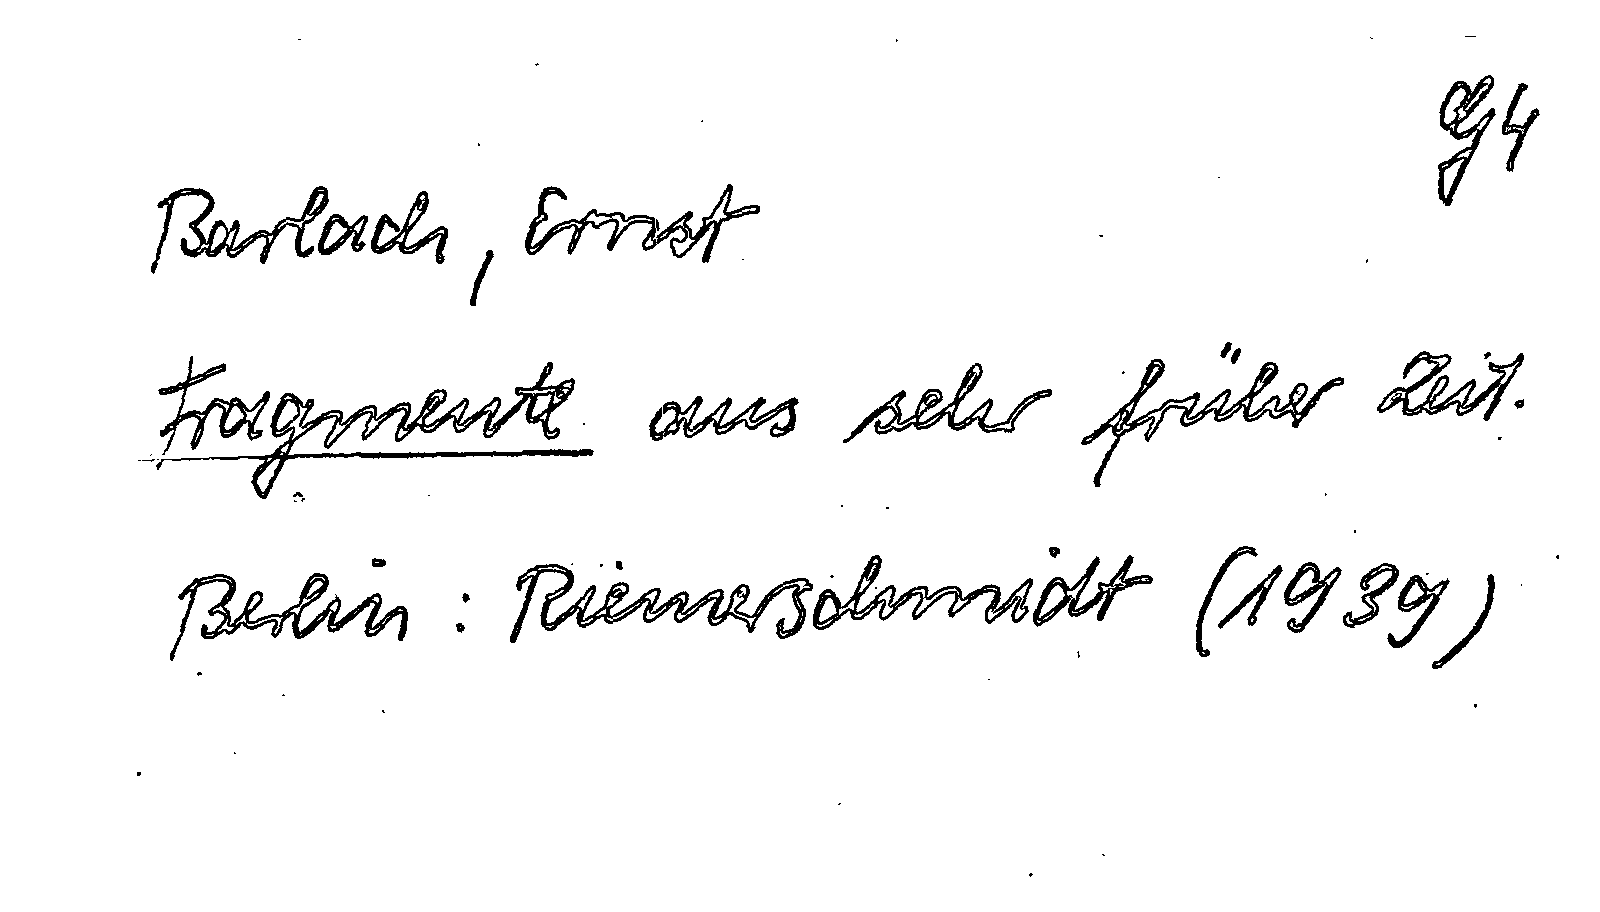 g4
Barlach, Ernst
Fragmente aus sehr früher Zeit.
Berlin : Riemerschmidt (1939)